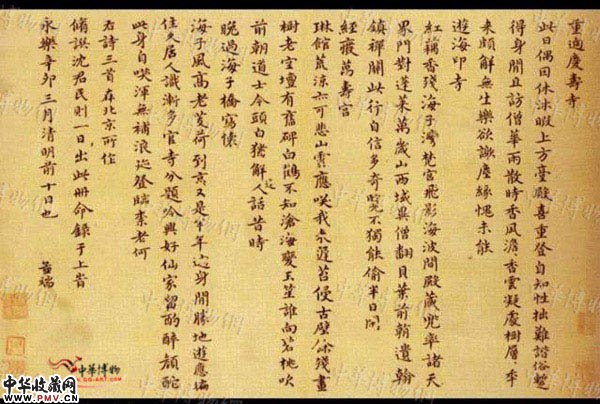 重過慶壽寺
此日偶因休沐暇上方臺殿喜重登自知性拙難諧俗暫
得身閒且訪僧華雨散時香風澹香雲凝處樹層年
來頗解無生樂欲謝塵緣愧未能
遊海印寺
紅藕香殘海子灣梵宮飛影海波間殿藏兜率諸天
界門對蓬萊萬歲山西域異僧翻貝葉前朝遺翰
鎮禪關此行自信多奇不獨能偷半日閒
經廢萬壽宮
琳館荒涼亦可悲山雲應笑我來遲苔侵古壁餘殘畫
樹老空壇有舊碑白鶴不知滄海變玉笙誰向碧桃吹
前朝道士今頭白猶解逢人話昔時
晚過海子橋寫懷
海子風高老芰荷到京又是半年過身閒勝地遊應徧
住久居人識漸多官寺分題吟興好仙家留酌醉顏酡
此身自笑渾無補浪迹登臨柰老何
右詩三首在北京所作
脩譔沈君民則一日出此冊命錄于上昔
永樂辛卯三月清明前十日也 孟端
中華博物
GG-ART.COM
中华收藏网
SC001.COM.CN